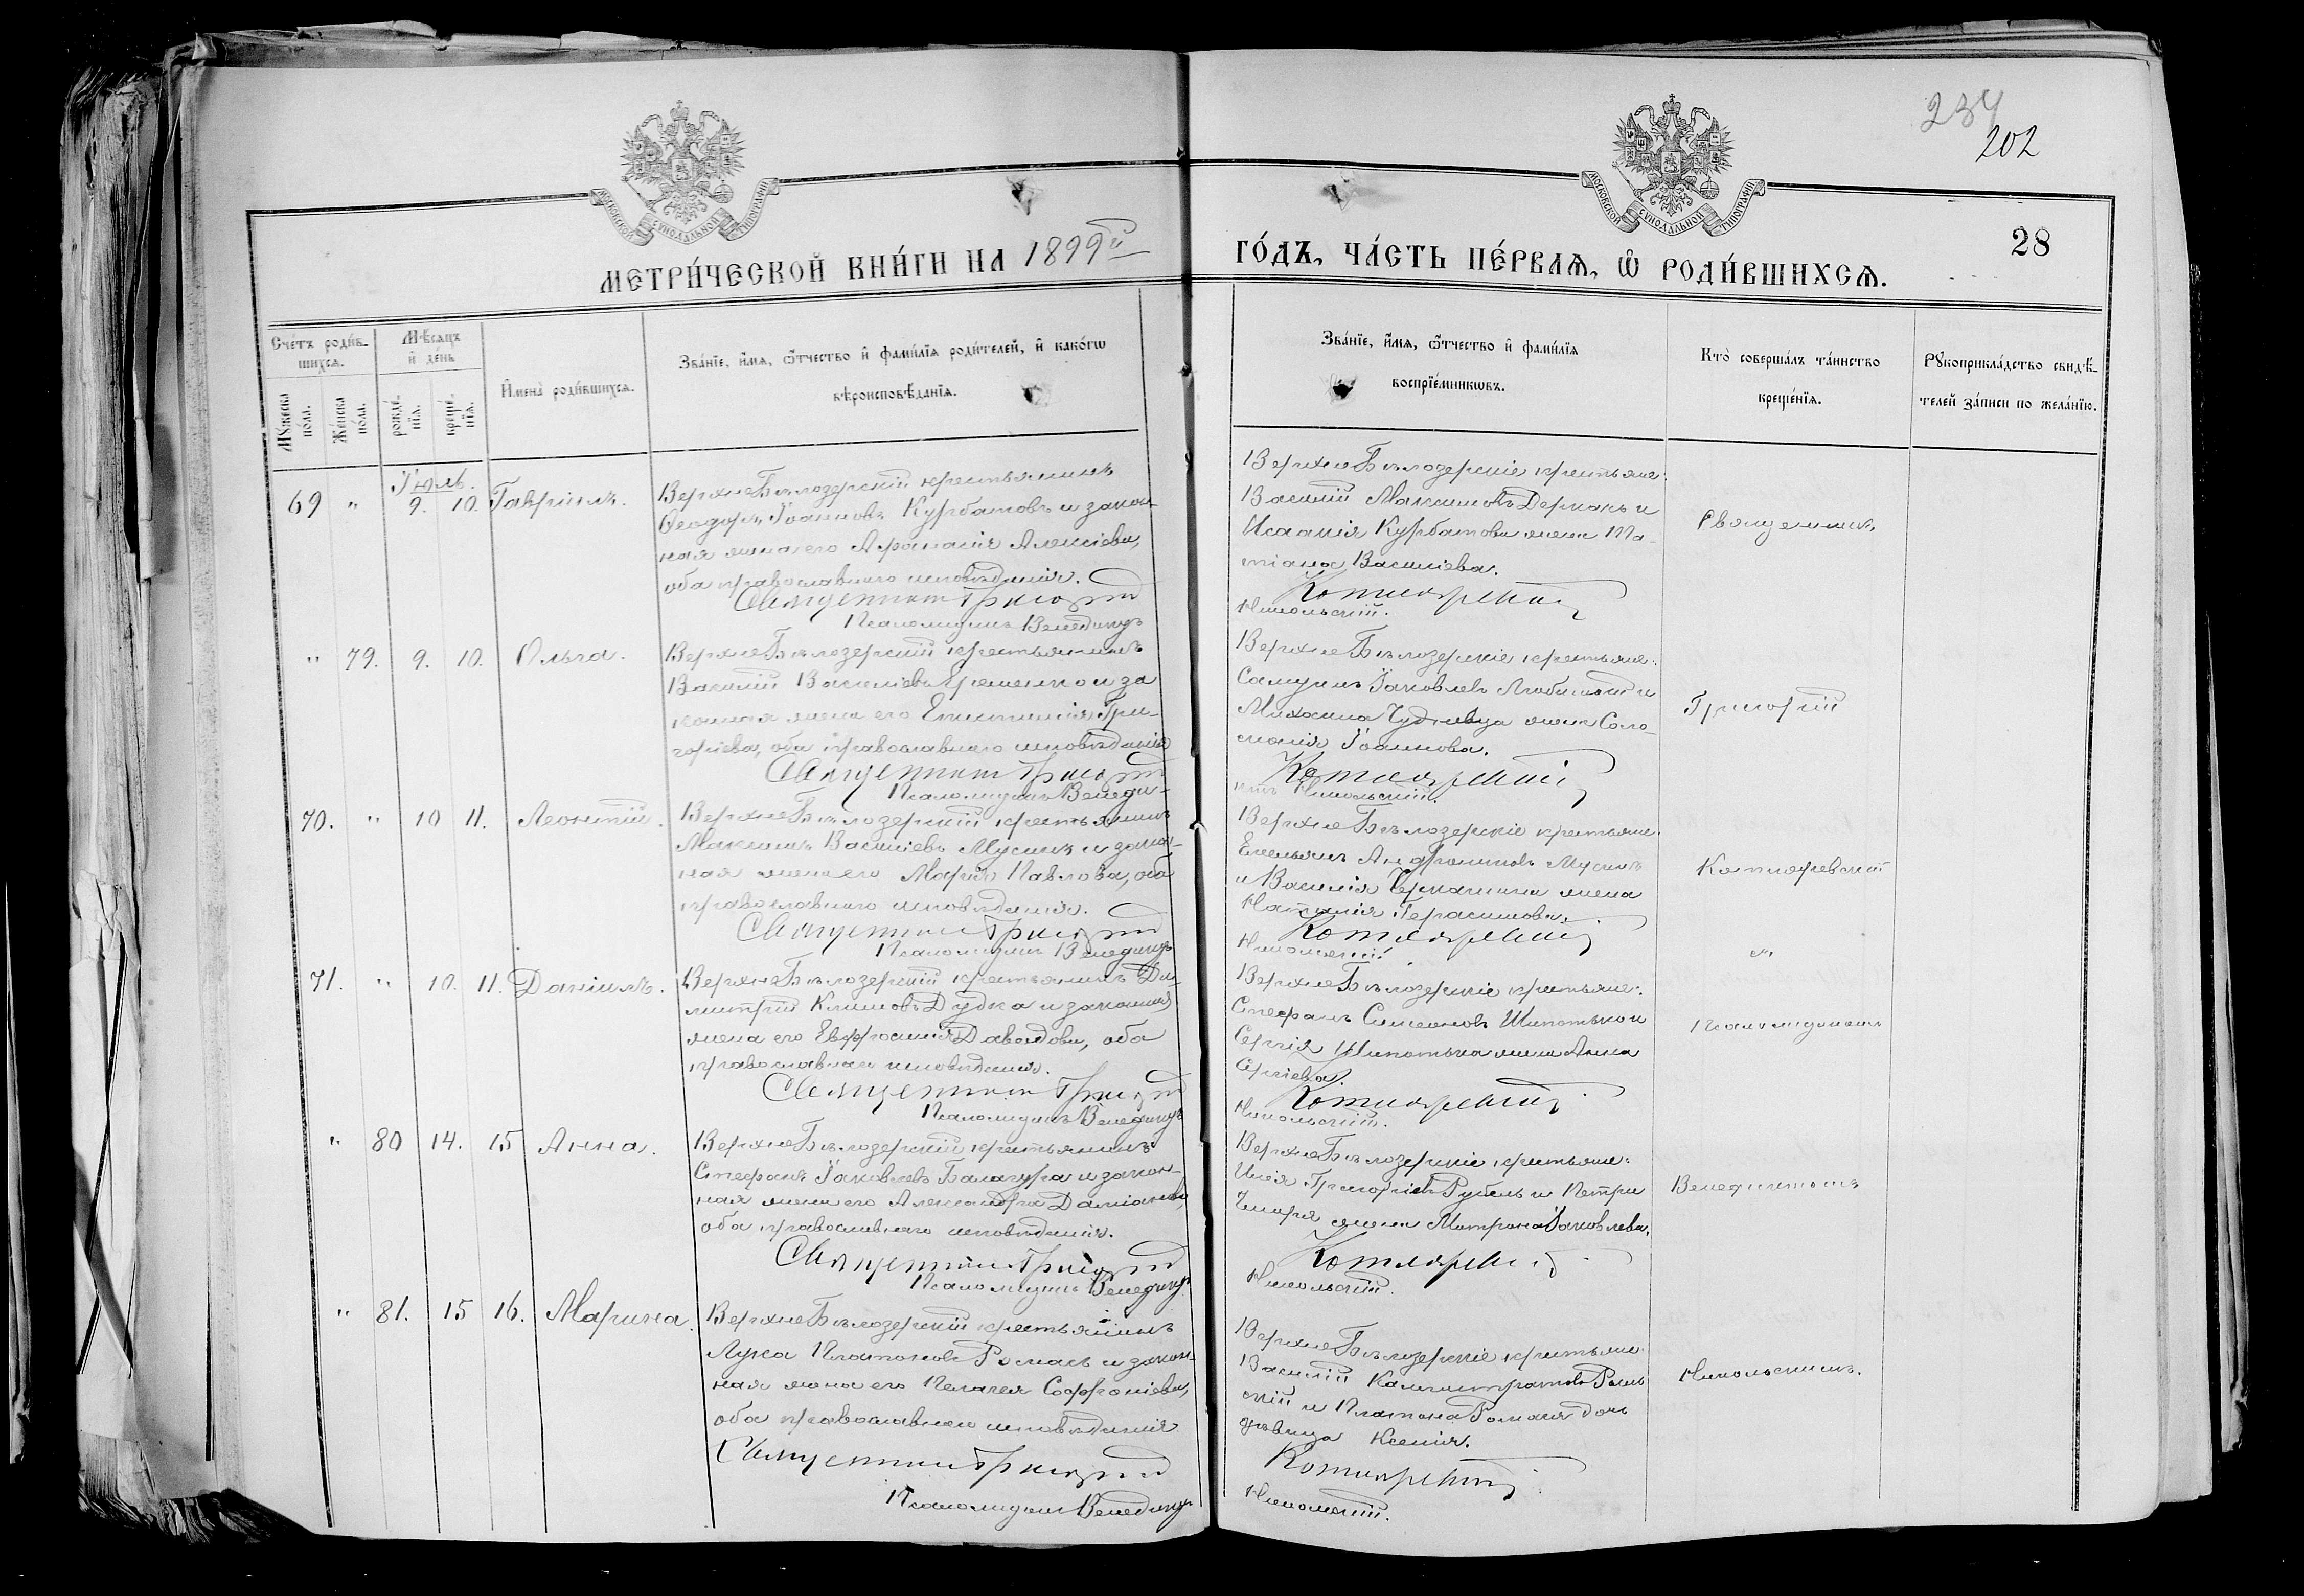 234
202
28
МОСКОВСКОЙ СѴНОДАЛЬНОЙ ТИПОГРАФІИ
МОСКОВСКОЙ СѴНОДАЛЬНОЙ ТИПОГРАФІИ
МЕТРИ́ЧЕСКОЙ КНИ́ГИ НА 1899й
ГО́ДЪ, ЧА́СТЬ ПЕ́РВАѦ, Ѽ РОДИ́ВШИХСѦ.
Сче́тъ роди́в-
шихсѧ.
Мꙋ́жеска по́ла.
Же́нска по́ла.
Мѣ́сѧцъ
и҆ де́нь
рожде́-
нїѧ.
креще́-
нїѧ.
И҆мена̀ роди́вшихсѧ.
Зва́нїе, и҆́мѧ, ѻ҆́тчество и҆ фами́лїѧ роди́телей, и҆ како́гѡ
вѣроисповѣ́данїѧ.
Зва́нїе, и҆́мѧ, ѻ҆́тчество и҆ фами́лїѧ
воспрїе́мникѡвъ.
Кто̀ соверша́лъ та́инство
креще́нїѧ.
Рꙋкоприкла́дство свидѣ́-
телей за́писи по жела́нїю.
Іюль.
69 " 9. 10. Гавріилъ.
ВерхнеБѣлозерскій крестьянинъ
Ѳеодоръ Іоанновъ Курбатовъ и закон-
ная жена его Афанасія Алексіева,
оба православнаго исповѣданія.
Священникъ Григорій
Псаломщикъ Венедиктъ
ВерхнеБѣлозерскіе крестьяне:
Василій Максимовъ Держанъ и
Исаакія Курбатова жена Та-
тіана Василіева.
Котляревскій
Никольскій.
Священникъ
" 79. 9. 10. Ольга.
ВерхнеБѣлозерскій крестьянинъ
Василій Василіевъ Еременко и за
конная жена его Епистимія Гри-
горіева, оба православнаго исповѣданія
Священникъ Григорій
Псаломщикъ Венеди-
ВерхнеБѣлозерскіе крестьяне:
Самуилъ Іаковлевъ и
Михаила жена Соло-
монія Іоаннова.
Котляревскій
ктъ Никольскій.
Григорій
70. " 10 11. Леонтій.
ВерхнеБѣлозерскій крестьянинъ
Максимъ Василіевъ Мусикъ и закон-
ная жена его Марія Павлова, оба
православнаго исповѣданія.
Священникъ Григорій
Псаломщикъ Венедиктъ
ВерхнеБѣлозерскіе крестьяне:
Емельянъ Андрониковъ Мусикъ
и Василія жена
Наталія Герасимова.
Котляревскій
Никольскій.
Котляревскій
и
71. " 10. 11. Даніилъ.
ВерхнеБѣлозерскій крестьянинъ Ди-
митрій Климовъ Дудка и законная
жена его Евфросинія Давидова, оба
православнаго исповѣданія.
Священникъ Григорій
Псаломщикъ Венедиктъ
ВерхнеБѣлозерскіе крестьяне:
Стефанъ Симеоновъ Шипотько и
Сергія Шипотька жена Анна
Сергіева.
Котляревскій
Никольскій.
Псаломщикомъ
" 80 14. 15 Анна.
ВерхнеБѣлозерскій крестьянинъ
Стефанъ Іаковлевъ Балагура и закон-
ная жена его Александра Даміанова,
оба православнаго исповѣданія.
Священникъ Григорій
Псаломщикъ Венедиктъ
ВерхнеБѣлозерскіе крестьяне:
Илія Григоріевъ Рубель и Петра
жена Матрона Іаковлева.
Котляревскій
Никольскій.
Венедиктомъ
" 81. 15 16. Марина.
ВерхнеБѣлозерскій крестьянинъ
Лука Платоновъ Ромасъ и закон-
ная жена его Пелагея Софроніева,
оба православнаго исповѣданія
Священникъ Григорій
Псаломщикъ Венедиктъ
ВерхнеБѣлозерскіе крестьяне:
Василій Каллистратовъ
и Платона Ромася дочь
дѣвица Ксенія.
Котляревскій
Никольскій.
Никольскимъ.